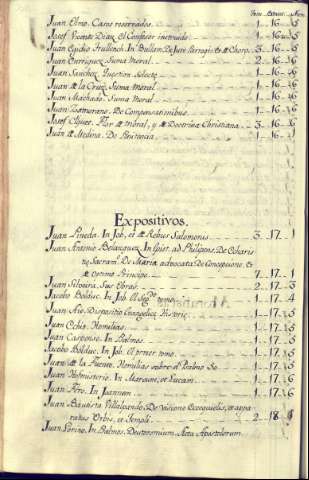 Tom. Estant. Num.
Juan Olmo. Casos reservados. 1 16 5
Josef Vicente Diaz, El Confesor instruido 1 16 5
Juan Egidio Trullench. In Bullam, De Jure Parrogis et Choro 3 16 6
Juan Enrriquez, Suma Moral 2 16 6
Juan Sanchez. Question Selecte 1 16 6
Juan de la Cruz, Suma Moral 1 16 6
Juan Machado. Suma Moral 1 16 6
Juan Zamorano. De Compensationibus 1 16 6
Josef Clquet. Flor de Moral, y de Doctrina Christiana 3 16 6
Juan de Medina. De Penitencia 1 17 1
Expositivos.
Juan Pineda. In Job, et de Rebus Salomonis 3 17 1
Juan Antonio Velazquez. In Epist. ad Philipens, De Eucharis
tiæ Sacram. De Maria advocata De Concepcione, et
de Optimo Principe 7 17 1
Juan Silveira, Sus Obras 2 17 3
Jacobo Bolduc. In Job. El Seg.do tomo 1 17 4
Juan Dispositio Evangelicæ Historiæ 1 17 5
Juan Homilias 1 17 5
Juan In Psalmos 1 17 5
Jacobo Bolduc. In Job. El primer tomo 1 17 5
Juan de la Fuente. Homilias sobre el Psalmo 50 1 17 6
Juan In Mataeum, et Lucam 1 17 6
Juan In Joannem 1 17 6
Juan Bautista Villalpando. De Visione Ezequielis, et appa
ratus Urbis, et Templi 2 18 1
Juan Lorino. In Psalmos, Deuteronium. Acta Apostolorum.